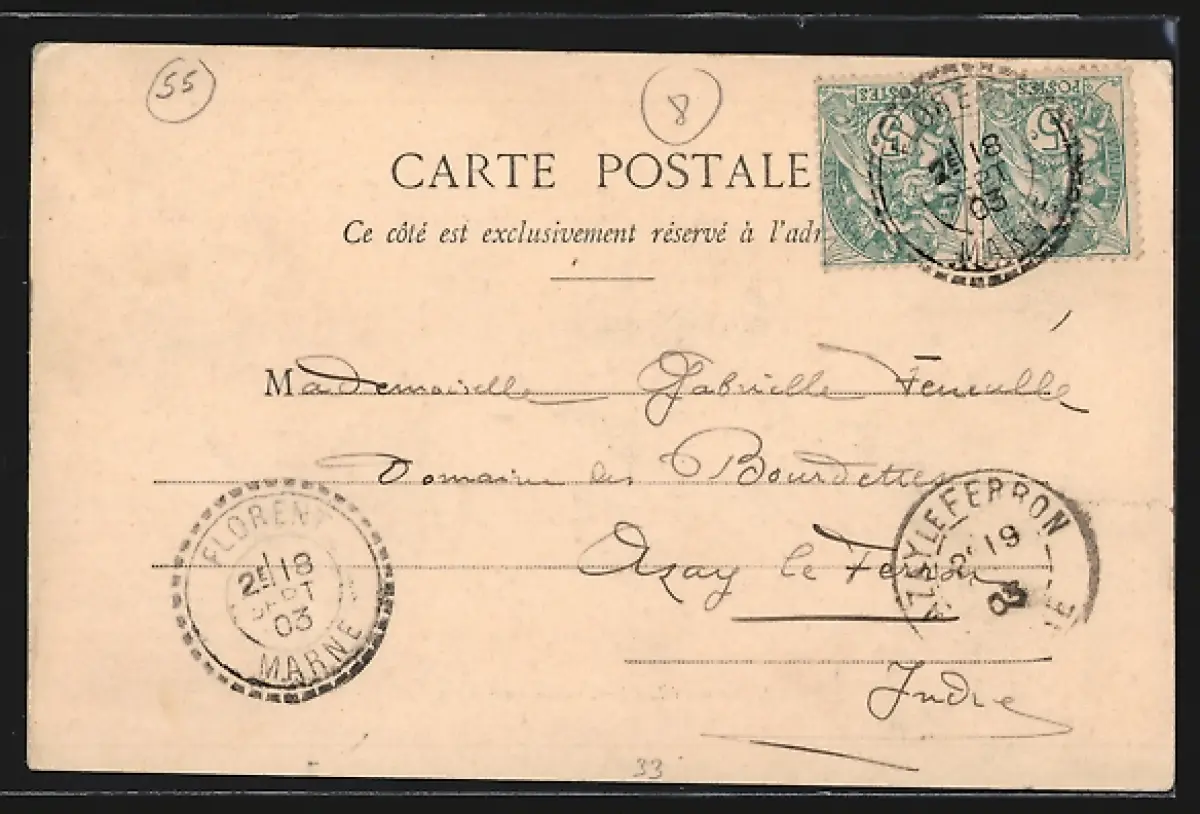 55
8
CARTE POSTALE
Ce côté est exclusivement réservé à l'adr
POSTES 5c
POSTES 5c
FLORENT
2E 18
SEPT
03
MARNE
Mademoiselle Gabrielle
Domaine des Bourdettes
Azay le Ferron
Indre
FLORENT
2E 18
SEPT
03
MARNE
AZAY LE FERRON
2E 19
03
33